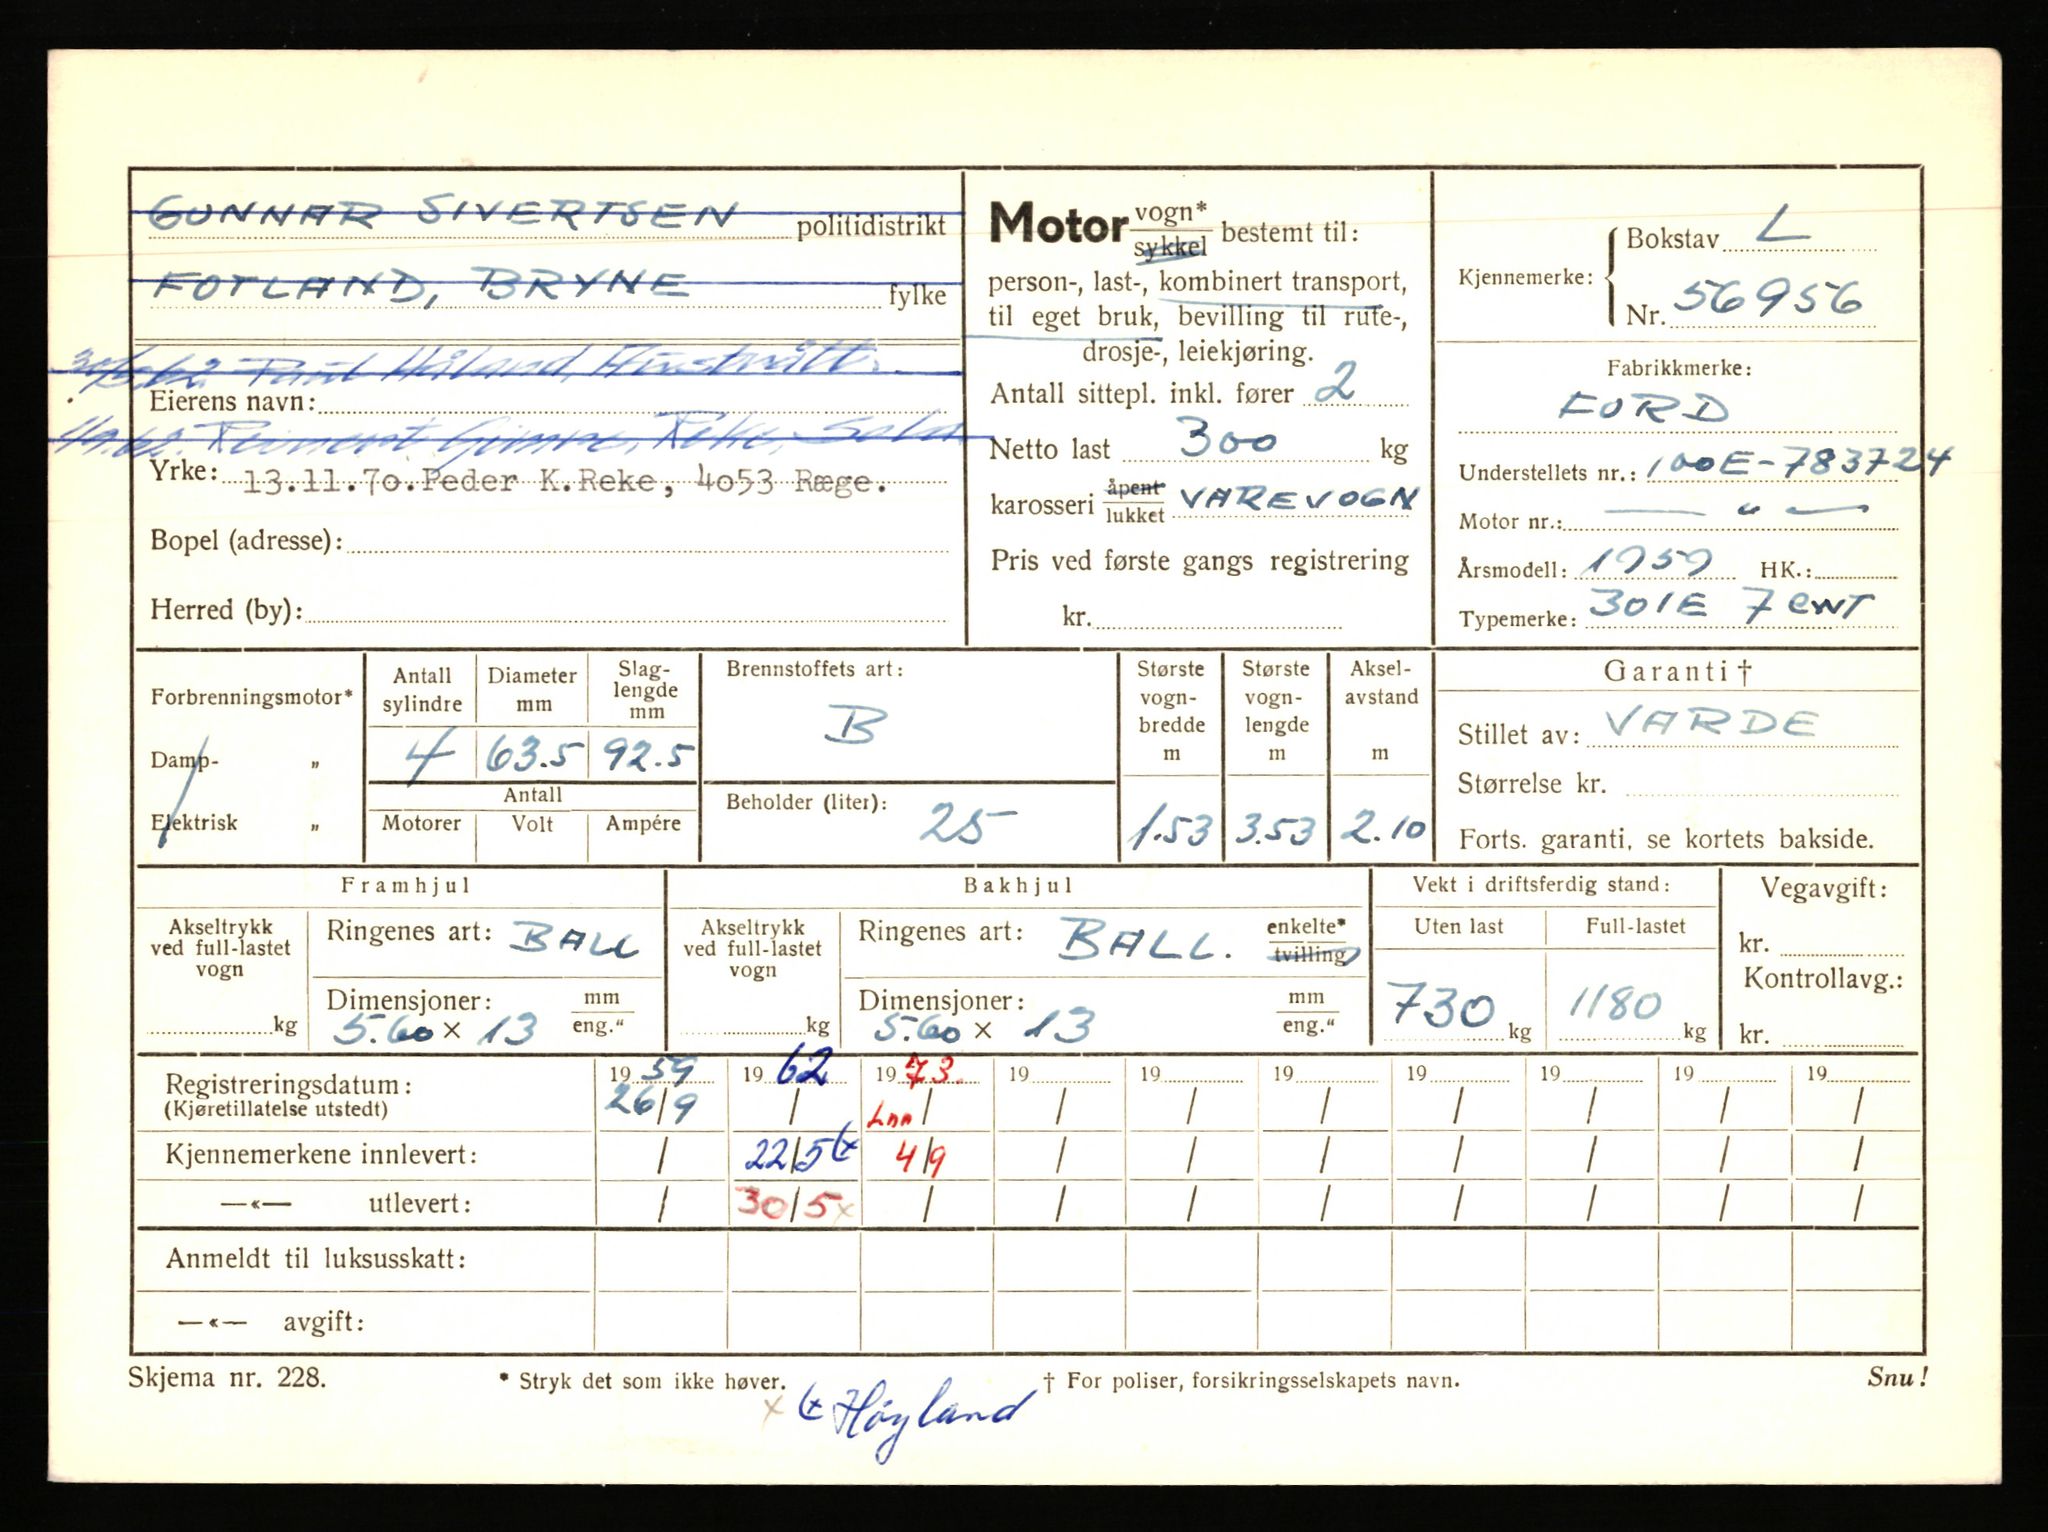 GUNNAR SIVERTSEN politidistrikt
FOTLAND, BRYNE fylke
Håland,
Eierens navn:
Gimre, Reke, Sola
Yrke: 13.11.70. Peder K. Reke, 4053 Ræge.
Bopel (adresse):
Herred (by):
Motor vogn* sykkel bestemt til:
person-, last-, kombinert transport,
til eget bruk, bevilling til rute-,
drosje-, leiekjøring.
Antall sittepl. inkl. fører 2
Netto last 300 kg
karosseri åpent lukket VAREVOGN
Pris ved første gangs registrering
kr.
Kjennemerke: Bokstav L
Nr. 56956
Fabrikkmerke:
FORD
Understellets nr.: 100E-783724
Motor nr.: — " —
Årsmodell: 1959 HK.:
Typemerke: 301E 7 CWT
Forbrenningsmotor*
Damp- „
Elektrisk „
Antall sylindre Diameter mm Slag-lengde mm
4 63.5 92.5
Antall
Motorer Volt Ampére
Brennstoffets art:
B
Beholder (liter): 25
Største vogn-bredde m Største vogn-lengde m Aksel-avstand m
1.53 3.53 2.10
Garanti †
Stillet av: VARDE
Størrelse kr.
Forts. garanti, se kortets bakside.
Framhjul
Akseltrykk ved full-lastet vogn
kg
Ringenes art: BALL
Dimensjoner: mm eng."
5.60 x 13
Bakhjul
Akseltrykk ved full-lastet vogn
kg
Ringenes art: BALL. enkelte* tvilling
Dimensjoner: mm eng."
5.60 x 13
Vekt i driftsferdig stand:
Uten last Full-lastet
730 kg 1180 kg
Vegavgift:
kr.
Kontrollavg.:
kr.
Registreringsdatum: 1959 1962 1973. 19 19 19 19 19 19 19
(Kjøretillatelse utstedt) 26/9 / Lnn / / / / / / / /
Kjennemerkene innlevert: / 22/5 4/9 / / / / / / /
—«— utlevert: / 30/5 x / / / / / / / /
Anmeldt til luksusskatt:
—«— avgift:
Skjema nr. 228. * Stryk det som ikke høver. † For poliser, forsikringsselskapets navn. Snu!
x Høyland